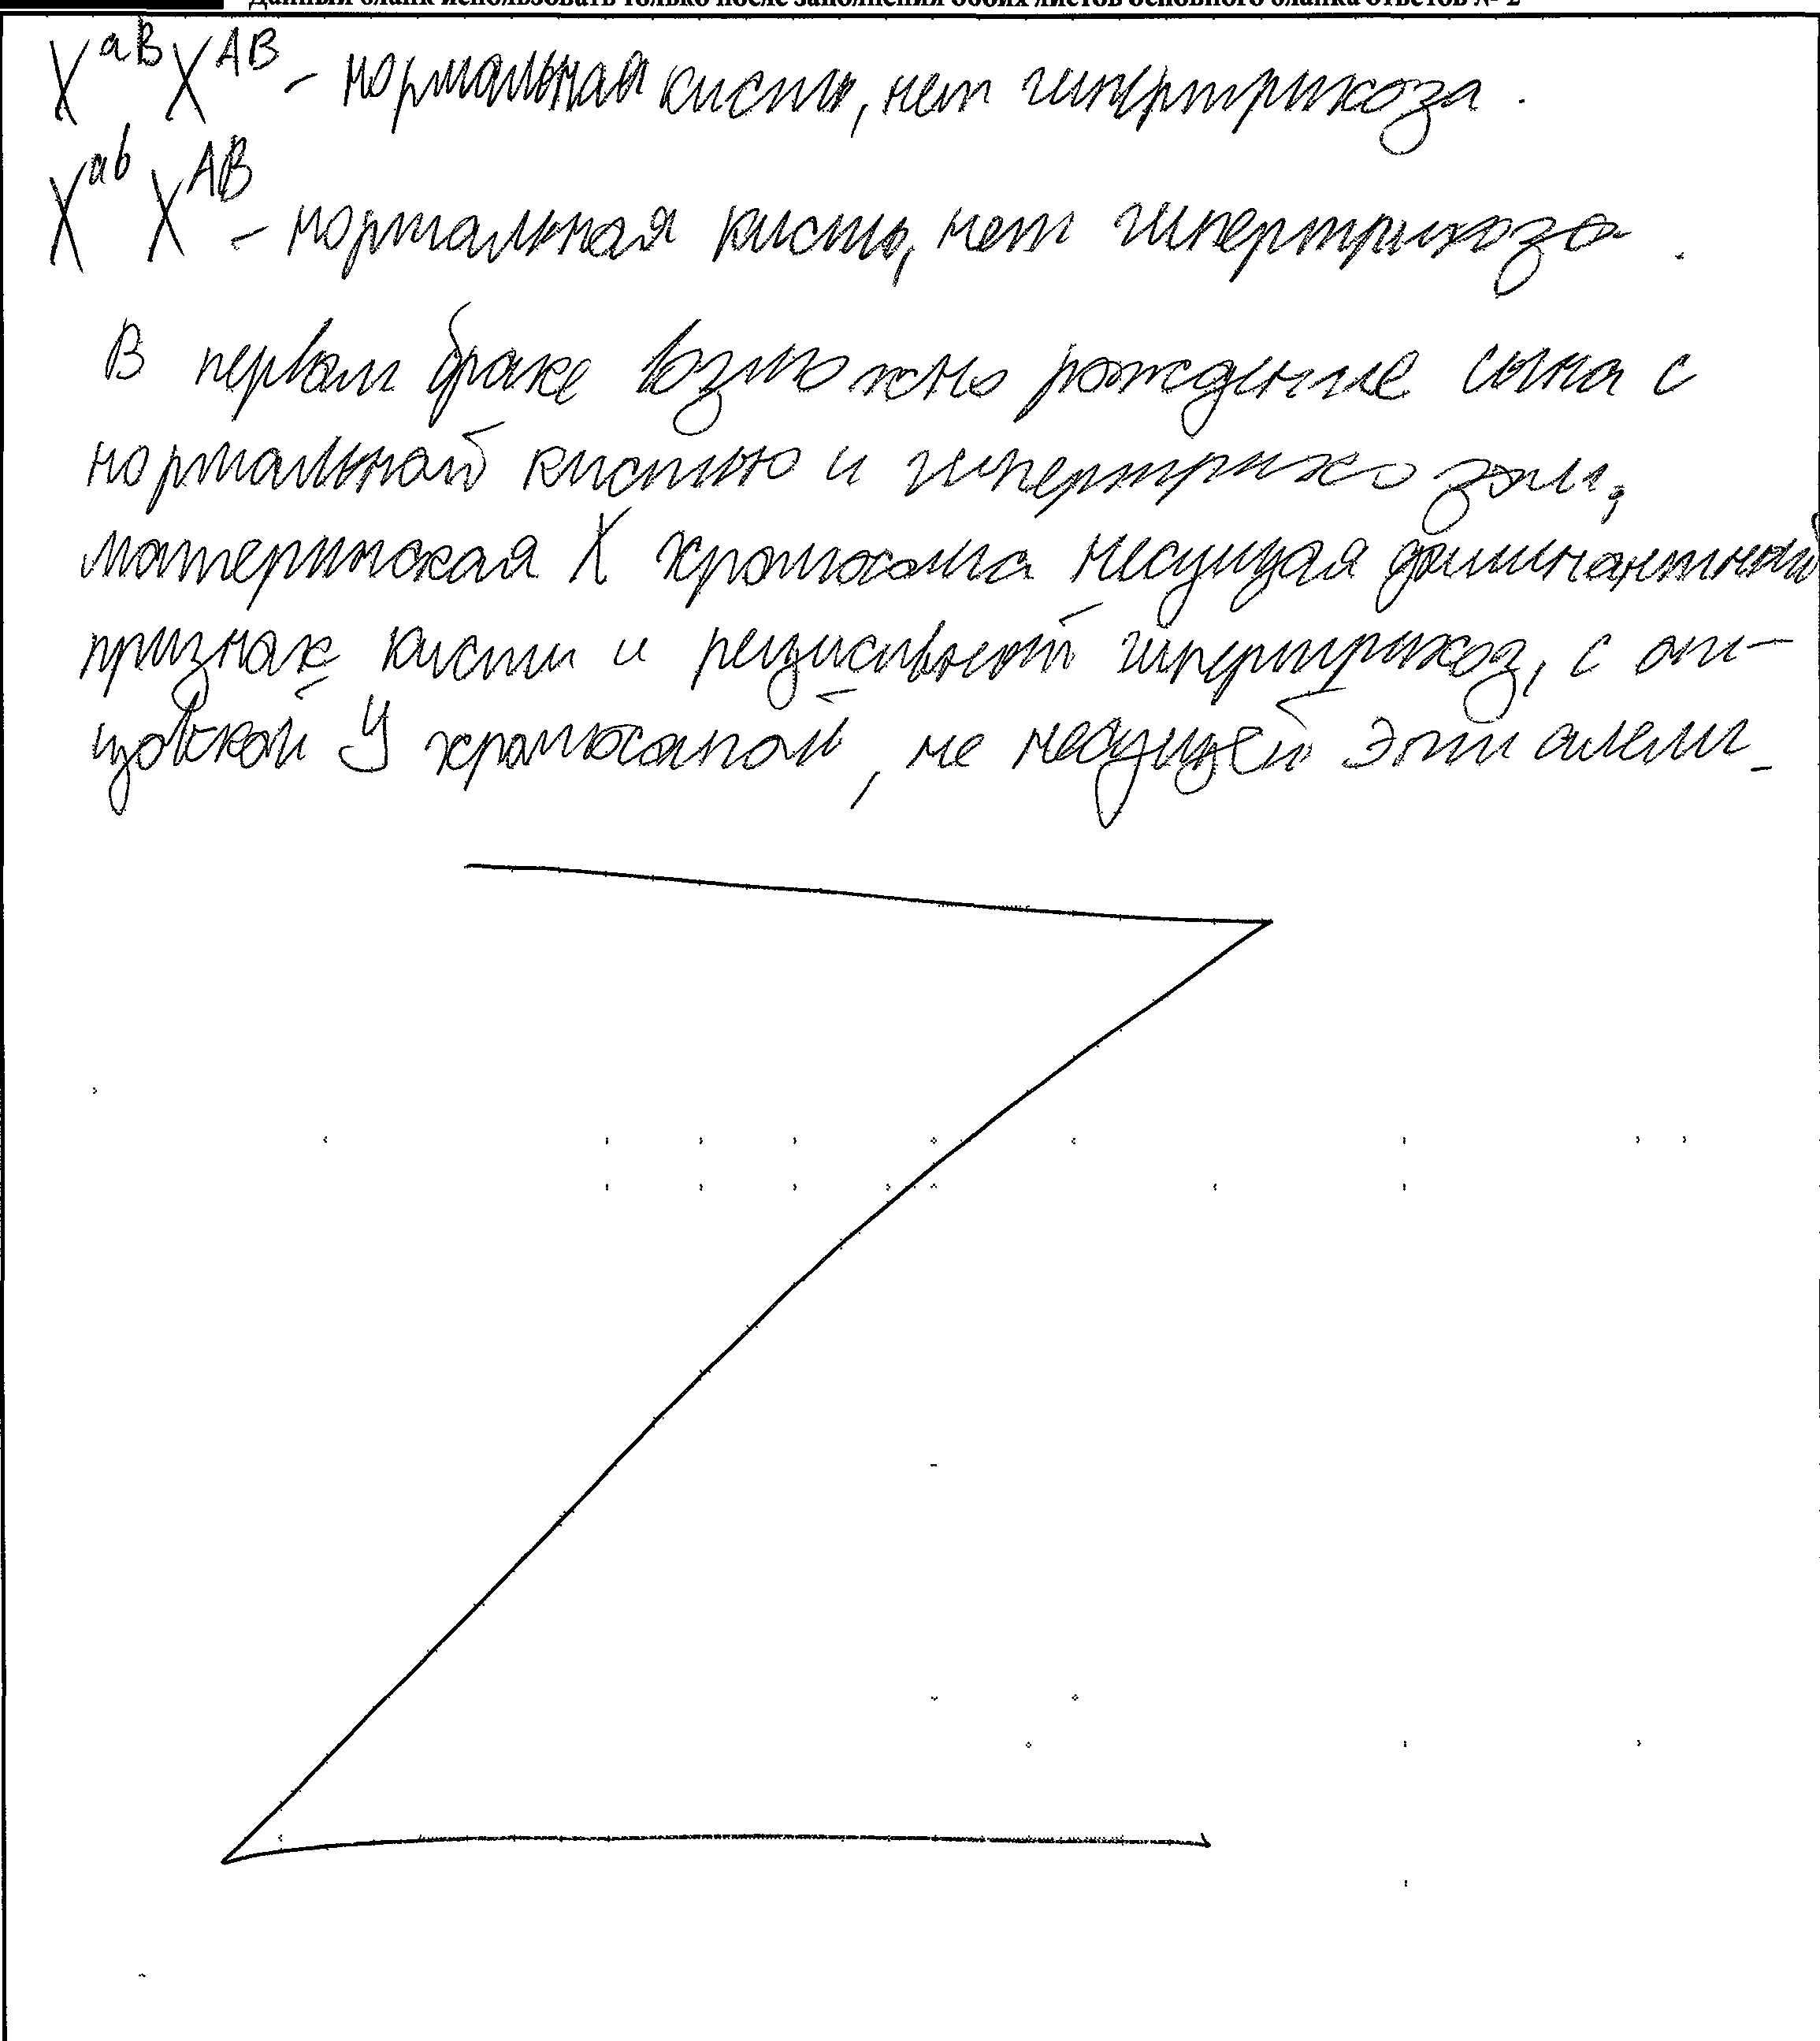 Данный бланк использовать только после заполнения обоих листов основного бланка ответов № 2
X^aB X^AB - нормальная кисть, нет гипертрихоза.
X^ab X^AB - нормальная кисть, нет гипертрихоза.
В первом браке возможно рождение сына с
нормальной кистью и гипертрихозом,
материнская X хромосома несущая доминантный
признак кисти и рецисивный гипертрихоз, с от-
цовской У хромосомой, не несущей эти алели.